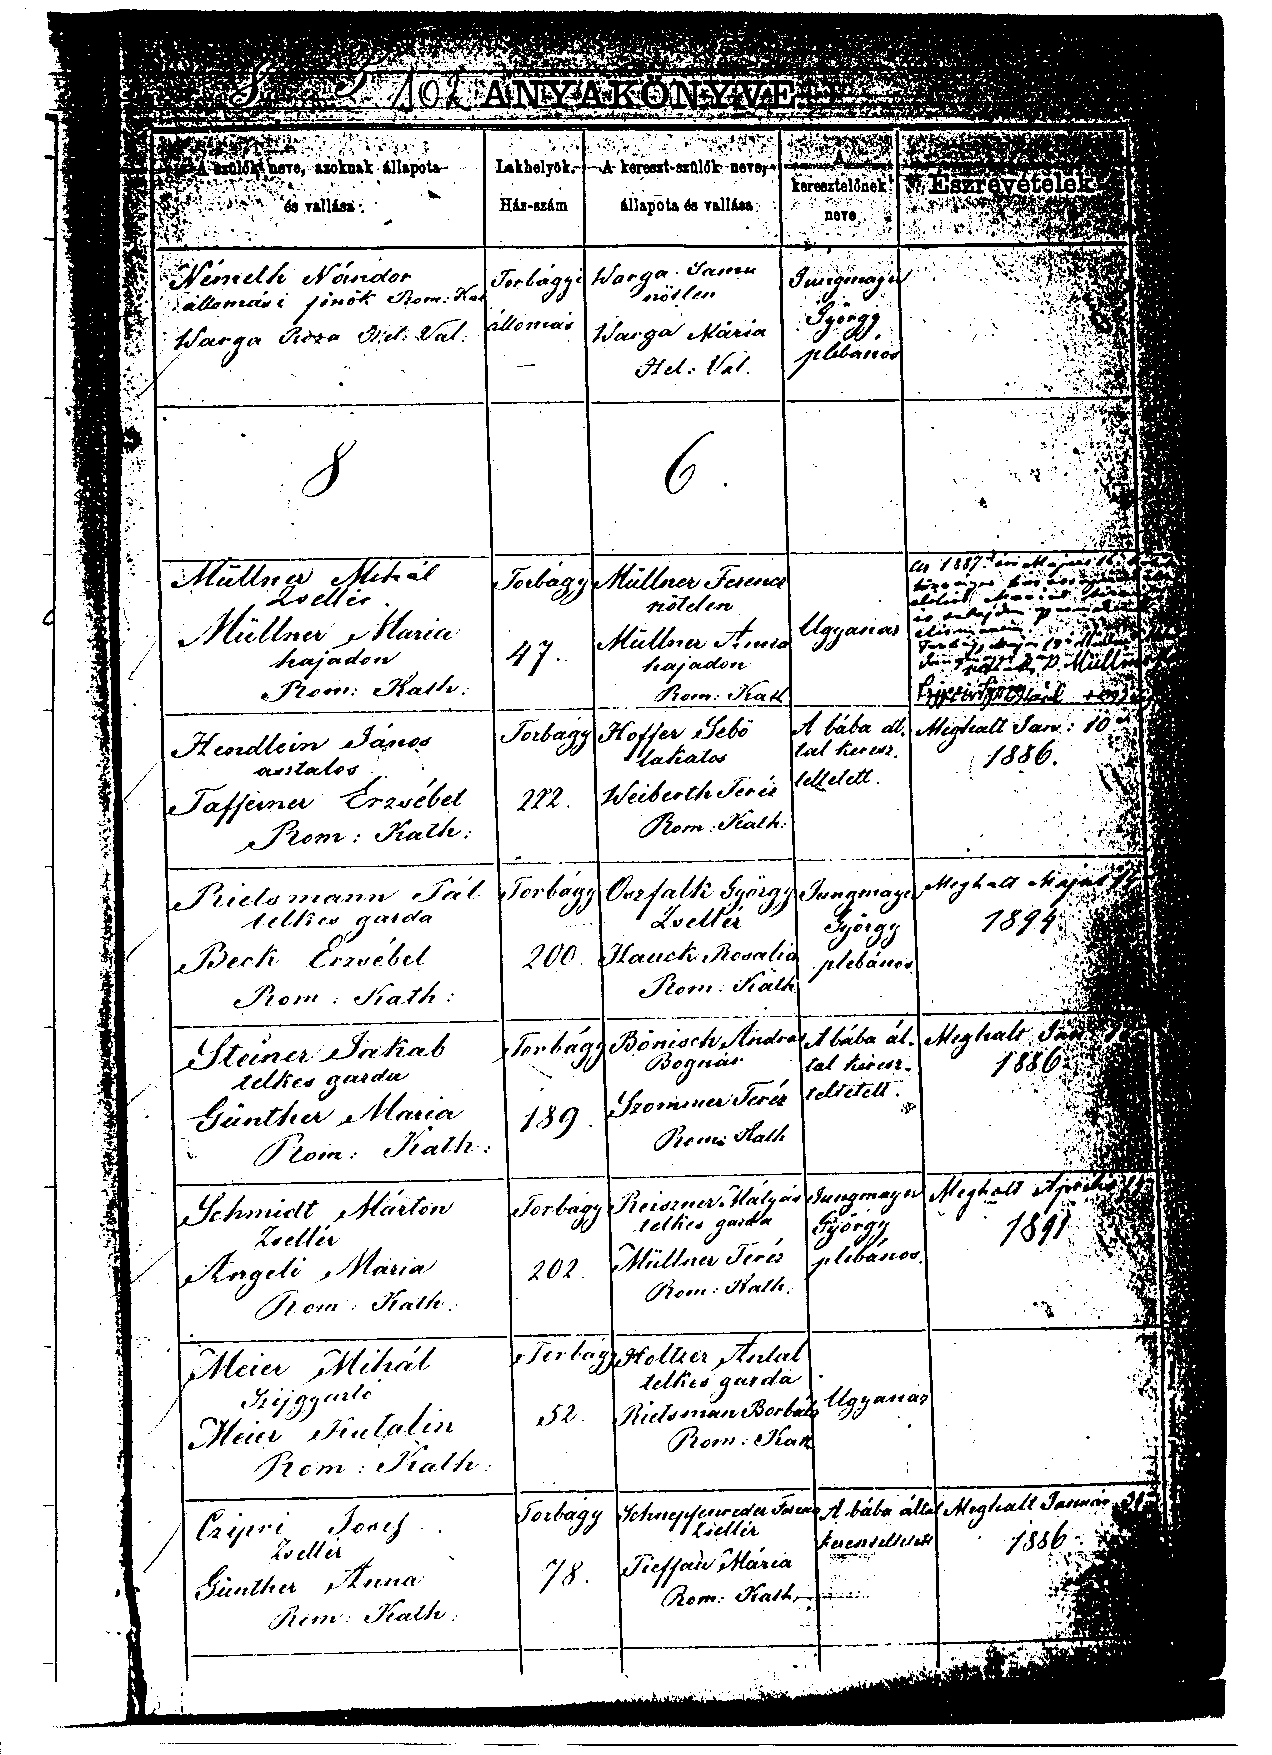 102 ANYAKÖNYVE
A szülők neve, azoknak állapota
és vallása
Lakhelyök.
Ház-szám
A kereszt-szülők neve,
állapota és vallása
A
keresztelőnek
neve
Észrevételek
Németh Nándor
állomási főnök Rom: Kat
Warga Roza Hel: Val.
Torbágyi
állomás
—
Warga Samu
nőtlen
Warga Mária
Hel: Val.
Jungmayer
György
plebános
8
6.
Müllner Mihál
Zsellér
Müllner Maria
hajadon
Rom: Kath:
Torbágy
47.
Müllner Ferenc
nőtelen
Müllner Anna
hajadon
Rom: Kath
Ugyanaz
Hendlein János
asztalos
Tafferner Erzsébet
Rom: Kath:
Torbágy
222.
Hoffer Sebő
lakatos
Weiberth Teréz
Rom: Kath:
A bába ál-
tal keresz-
teltetett.
Meghalt Jan: 10
1886.
Rielsmann Pál
telkes garda
Beck Erzsébet
Rom: Kath:
Torbágy
200.
György
Zsellér
Hauck Rosalia
Rom: Kath
Jungmayer
György
plebános
Meghalt Május
1894
Steiner Jakab
telkes garda
Günther Maria
Rom: Kath:
Torbágy
189.
Bönisch András
Bognár
Szommer Teréz
Rom: Kath
A bába ál-
tal keresz-
teltetett.
Meghalt Jan
1886
Schmidt Márton
Zsellér
Angeli Maria
Rom: Kath:
Torbágy
202.
Reiszner Mátyás
telkes garda
Müllner Teréz
Rom: Kath.
Jungmayer
György
plebános.
Meghalt Április
1891
Meier Mihál
Szijgyartó
Meier Katalin
Rom: Kath:
Torbágy
52.
Holtzer Antal
telkes garda
Rielsman Borbála
Rom: Kath
Ugyanaz
Czipri Josef
Zsellér
Günther Anna
Rom: Kath:
Torbágy
78.
Schnepfenreder Ferenc
Zsellér
Tieffan Mária
Rom: Kath.
A bába által
kereszteltetett
Meghalt Január 21
1886